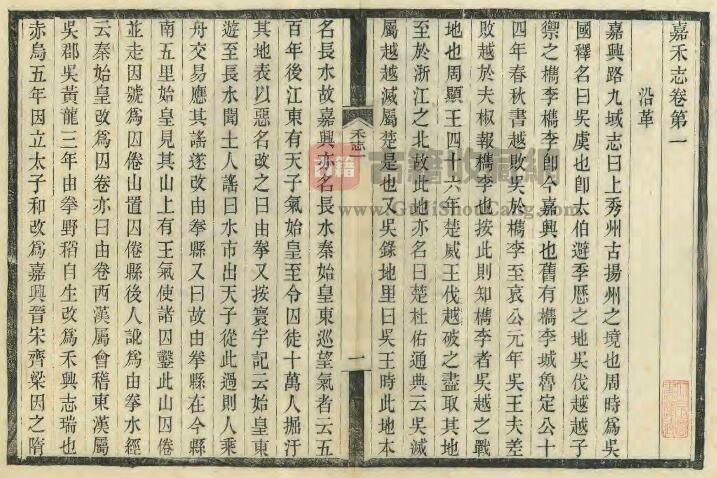 嘉禾志卷第一
沿革
嘉興路九域志曰上秀州古揚州之境也周時爲吳
國釋名曰吳虞也卽太伯避季歷之地吳伐越越子
禦之檇李檇李卽今嘉興也舊有檇李城魯定公十
四年春秋書越敗吳於檇李至哀公元年吳王夫差
敗越於夫椒報檇李也按此則知檇李者吳越之戰
地也周顯王四十六年楚威王伐越破之盡取其地
至於浙江之北故此地亦名曰楚杜佑通典云吳滅
屬越越滅屬楚是也又吳錄地里曰吳王時此地本
禾志一
一
名長水故嘉興亦名長水秦始皇東巡望氣者云五
百年後江東有天子氣始皇至令囚徒十萬人掘汙
其地表以惡名改之曰由拳又按寰宇記云始皇東
遊至長水聞土人謠曰水市出天子從此過則人乘
舟交易應其謠遂改由拳縣又曰故由拳縣在今縣
南五里始皇見其山上有王氣使諸囚鑿此山囚倦
並走因號爲囚倦山置囚倦縣後人訛爲由拳水經
云秦始皇改爲囚卷亦曰由卷西漢屬會稽東漢屬
吳郡吳黃龍三年由拳野稻自生改爲禾興志瑞也
赤烏五年因立太子和改爲嘉興晉宋齊梁因之隋
古籍收藏網
www.GuJiShouCang.com